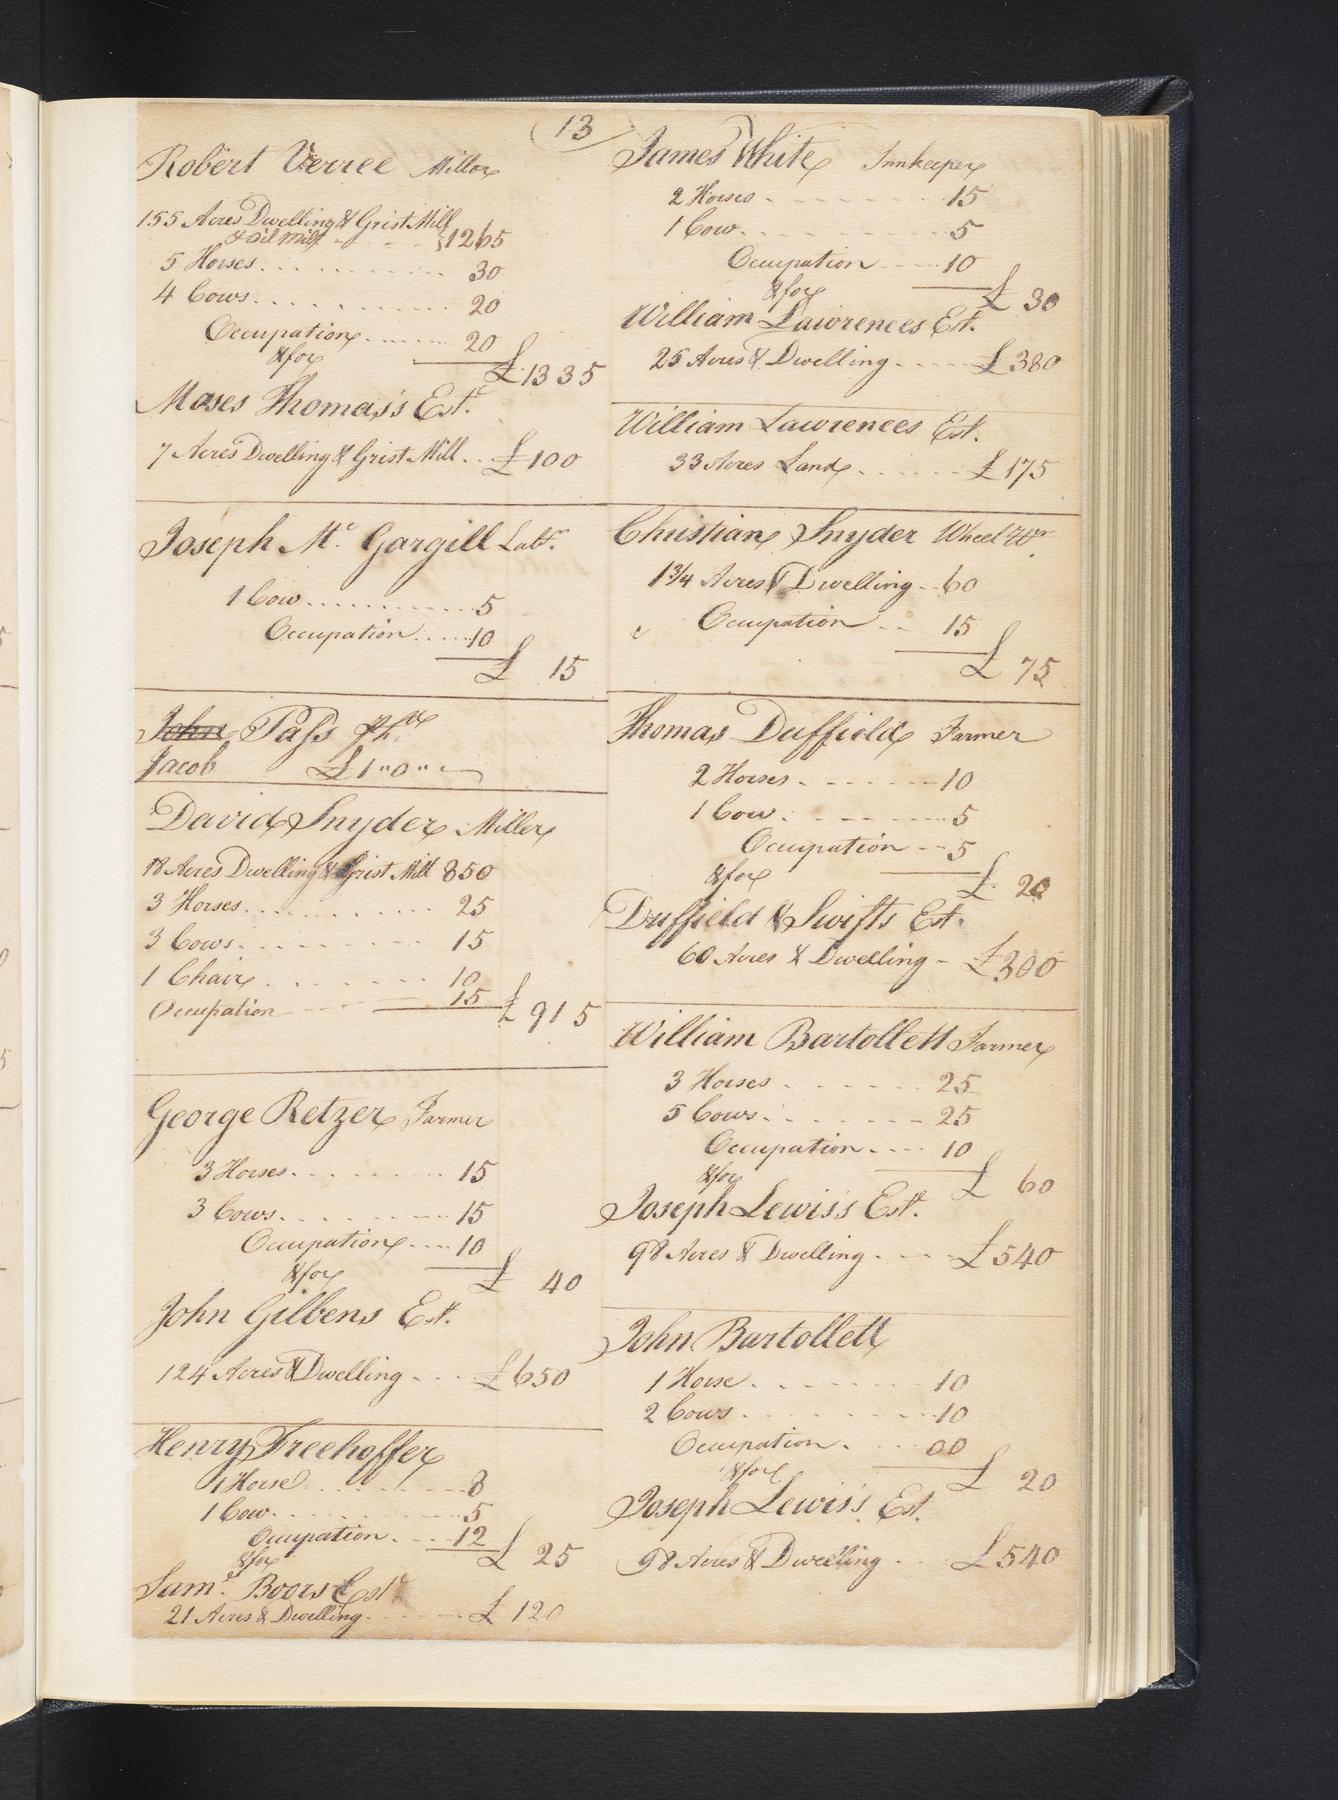 13
Robert Verree Miller
155 Acres Dwelling & Grist Mill
& Oil Mill - - - }1265
5 Horses. . . . . . . . . 30
4 Cows. . . . . . . . . 20
Occupation. . . . . . 20
&for £1335
Moses Thomas's Est.
7 Acres Dwelling & Grist Mill. . £100
Joseph Mc Gargill Labr.
1 Cow. . . . . . . . . . . 5
Occupation. . . . . 10
£ 15
John Pass
Jacob £1"0"
David Snyder Miller
18 Acres Dwelling & Grist Mill 850
3 Horses. . . . . . . . . 25
3 Cows. . . . . . . . 15
1 Chair . . . . . . . 10
Occupation - - - 15 £ 915
George Retzer Farmer
3 Horses. . . . . . . . 15
3 Cows. . . . . . . . 15
Occupation. . . . 10
&for £ 40
John Gilbens Est.
124 Acres & Dwelling - . . . £650
Henry Freehoffer
1 Horse . . . . . . . . 8
1 Cow. . . . . . . . 5
Occupation. . . . 12
&for £ 25
Saml. Boors Est
21 Acres & Dwelling. - - - - £ 120
James White Innkeeper
2 Horses - - - - - - - 15
1 Cow. . . . . . . . 5
Occupation - - - 10
&for £ 30
William Lawrences Est.
25 Acres & Dwelling - - - - £380
William Lawrences Est.
33 Acres Land. . . . . . £175
Christian Snyder Wheel Wr.
1 3/4 Acres & Dwelling - - 60
Occupation - - 15
£ 75
Thomas Duffield Farmer
2 Horses. - - - - - 10
1 Cow. - - - - - 5
Occupation - - 5
&for £. 20
Duffield & Swifts Est.
60 Acres & Dwelling - £300
William Bartollett Farmer
3 Horses . . . . . . . 25
5 Cows. . . . . . . . 25
Occupation. . . . 10
&for £ 60
Joseph Lewis's Est.
98 Acres & Dwelling. - - - £540
John Bartollett
1 Horse. . . . . . . . 10
2 Cows. . . . . . . . 10
Occupation. . . . 00
&for £ 20
Joseph Lewis's Est.
98 Acres & Dwelling . . . £540